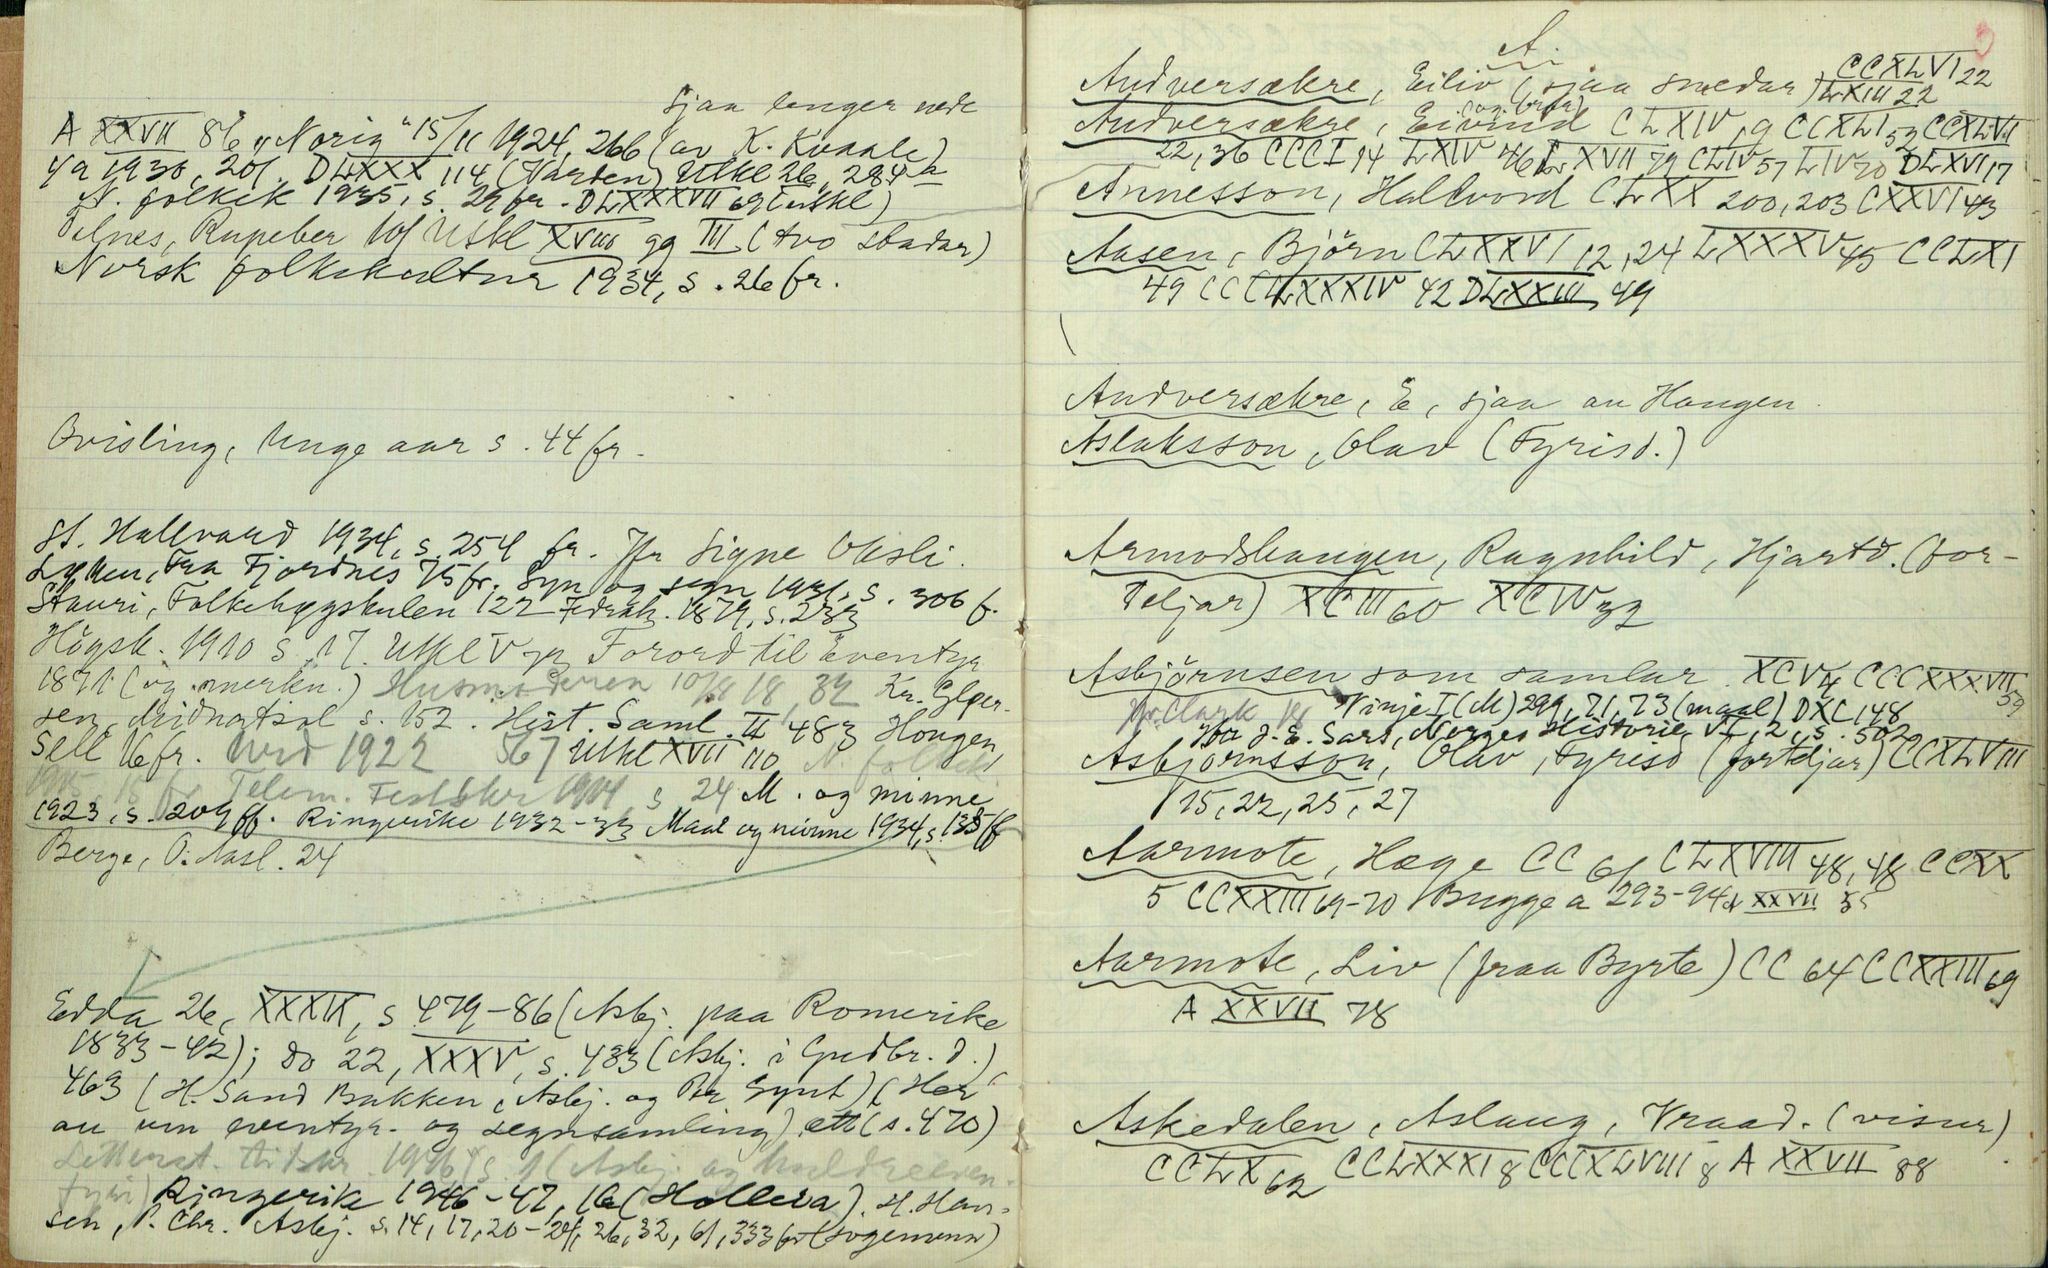 sjaa lenger nede
A XXVII 86 „Norig“ 15/11 1924, 266 (av K. Kvaale)
49 1930, 201. DLXXX 114 (Varden) Utkl 26, 284 a
N. folkek 1935, s. 29 fr. DLXXXVII 69 (utkl)
Telnes, Rupeber 101 Utkl XVIII 99 III (tvo stadar)
Norsk folkekultur 1934, s. 26 fr.
Qvisling, Unge aar s. 44 fr.
St. Hallvard 1934, s. 254 fr. Jfr Signe Oksli.
Fra Fjordnes 75 fr. Syn og segn 1931, s. 306 f.
Stauri, Folkehøgskulen 122 Fedrah. 1879, s. 233
Högsk. 1910 s. 17. Utkl V Forord til Eventyr
1871 (og merkn.) Husmoderen 10/8 18, 32 Kr. Elster
Midnatsol s. 152. Hist. Saml. II 483 Hougen,
Sell 16 fr. Urd 1922 567 Utkl XVII 110 N. folkek
1915, 15 fr. Telem. Festskr 1914 s 24 M. og minne
1923, s. 209 ff. Ringerike 1932-33 Maal og minne 1934, s. 135 ff
Berge, O. Aasl. 24
Edda 26, XXXIX, s 479-86 (Asbj. paa Romerike
1833-42); do 22, XXXV, s. 433 (Asbj. i Gudbr. d.)
463 (H. Sand Bakken, Asbj. og Per Gynt) (Her
au um eventyr- og segnsamling) (s. 470)
Litterat. tidskr. 1946, s. 1 (Asbj. og huldreeven-
tyr) Ringerike 1946-47, 16 (Hollera). H. Han-
sen, P. Chr. Asbj. s. 14, 17, 20-24, 26, 32, 61, 333 fr (sogemenn)
A.
Andversækre, Eiliv (sjaa smedar) CCXLVI 22
LXIII 22
Andversækre, Eivind CLXIV, 9 CCXLI 52 CCXLVI
22, 36 CCCI 14 LXIV 46 LXVII 79 CLIV 57 LIV 70 DLXVI 17
Annesson, Hallvord CLXX 200, 203 CXXVI 43
Aasen, Björn CLXXVI 12, 24 LXXXV 45 CCLXI
49 CCCLXXXIV 42 DLXXIII 49
Andversækre, E, sjaa au Haugen
Aslaksson, Olav (Fyrisd.)
Armodshaugen, Ragnhild, Hjartd. (for-
teljar) XCIII 60 XCIV 32
Asbjörnsen som samlar. XCV 4 CCCXXXVII
59
Clark 18 Vinje I (M) 299, 71, 73 (maal) DXC 148
J. E. Sars, Norges Historie, VI, 2, s. 502
Asbjörnsson, Olav, Fyrisd (forteljar) CCXLVIII
15, 22, 25, 27
Aarmote, Hæge CC 61 CLXVIII 48, 48 CCXX
5 CCXXIII 69-70 Bugge a 293-94 A XXVII 35
Aarmote, Liv (fraa Byrte) CC 64 CCXXIII 69
A XXVII 78
Askedalen, Aslaug, Vraad. (visur)
CCLX 62 CCLXXXI 8 CCCXLVIII 8 A XXVII 88